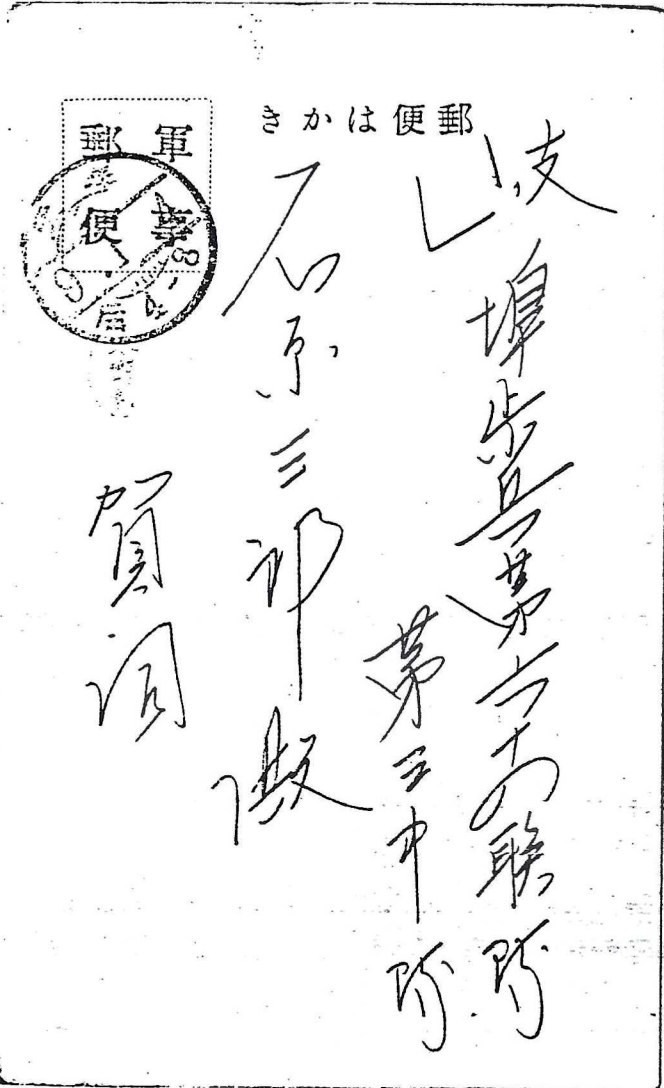 郵便はかき
軍事
郵便
岐埠歩兵第六十八聯隊
第三中隊
石原三郎殿
賀詞